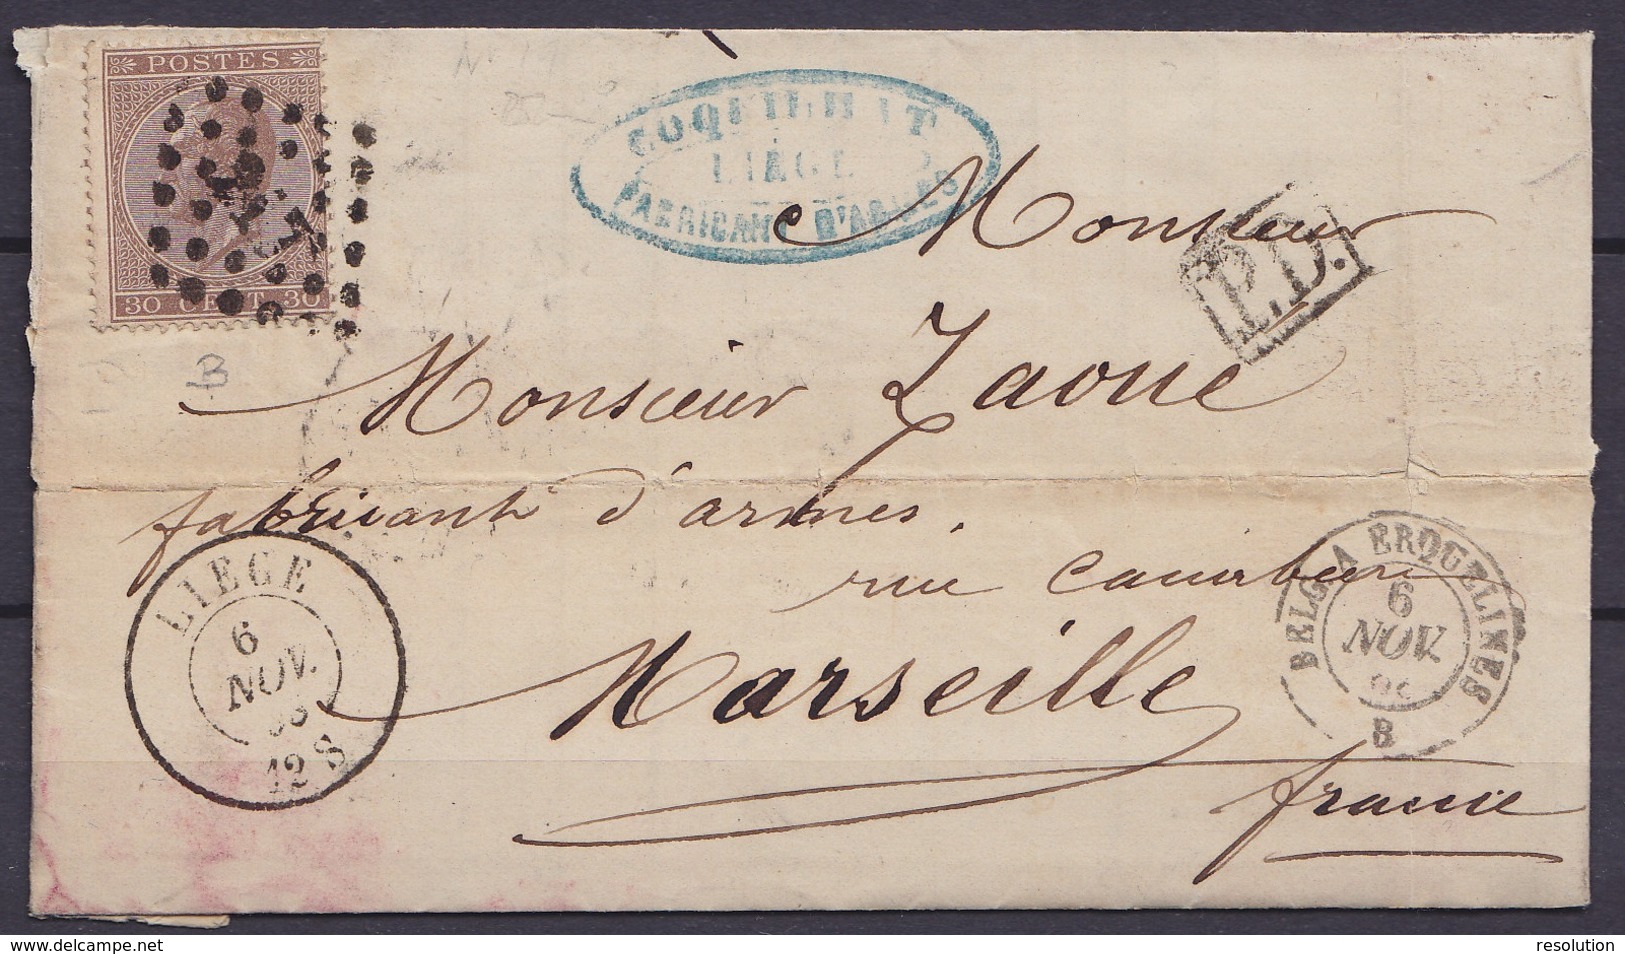 POSTES
30 CENT. 30
N° 19
B
COQUILHAT
LIÉGE
FABRICANT D'ARMES
P.D.
Monsieur
Monsieur Zaoue
fabricant d'armes.
rue
Marseille
france
LIEGE
6
NOV.
12 S
BELG. A ERQUELINES
6
NOV.
B
delcampe.net
resolution